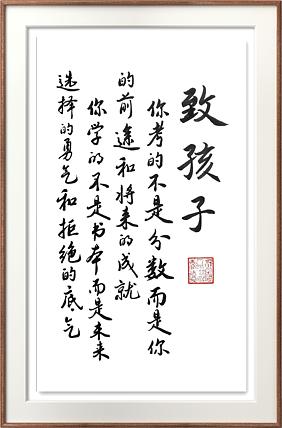 致孩子
你考的不是分数而是你
的前途和将来的成就
你学的不是书本而是未来
选择的勇气和拒绝的底气